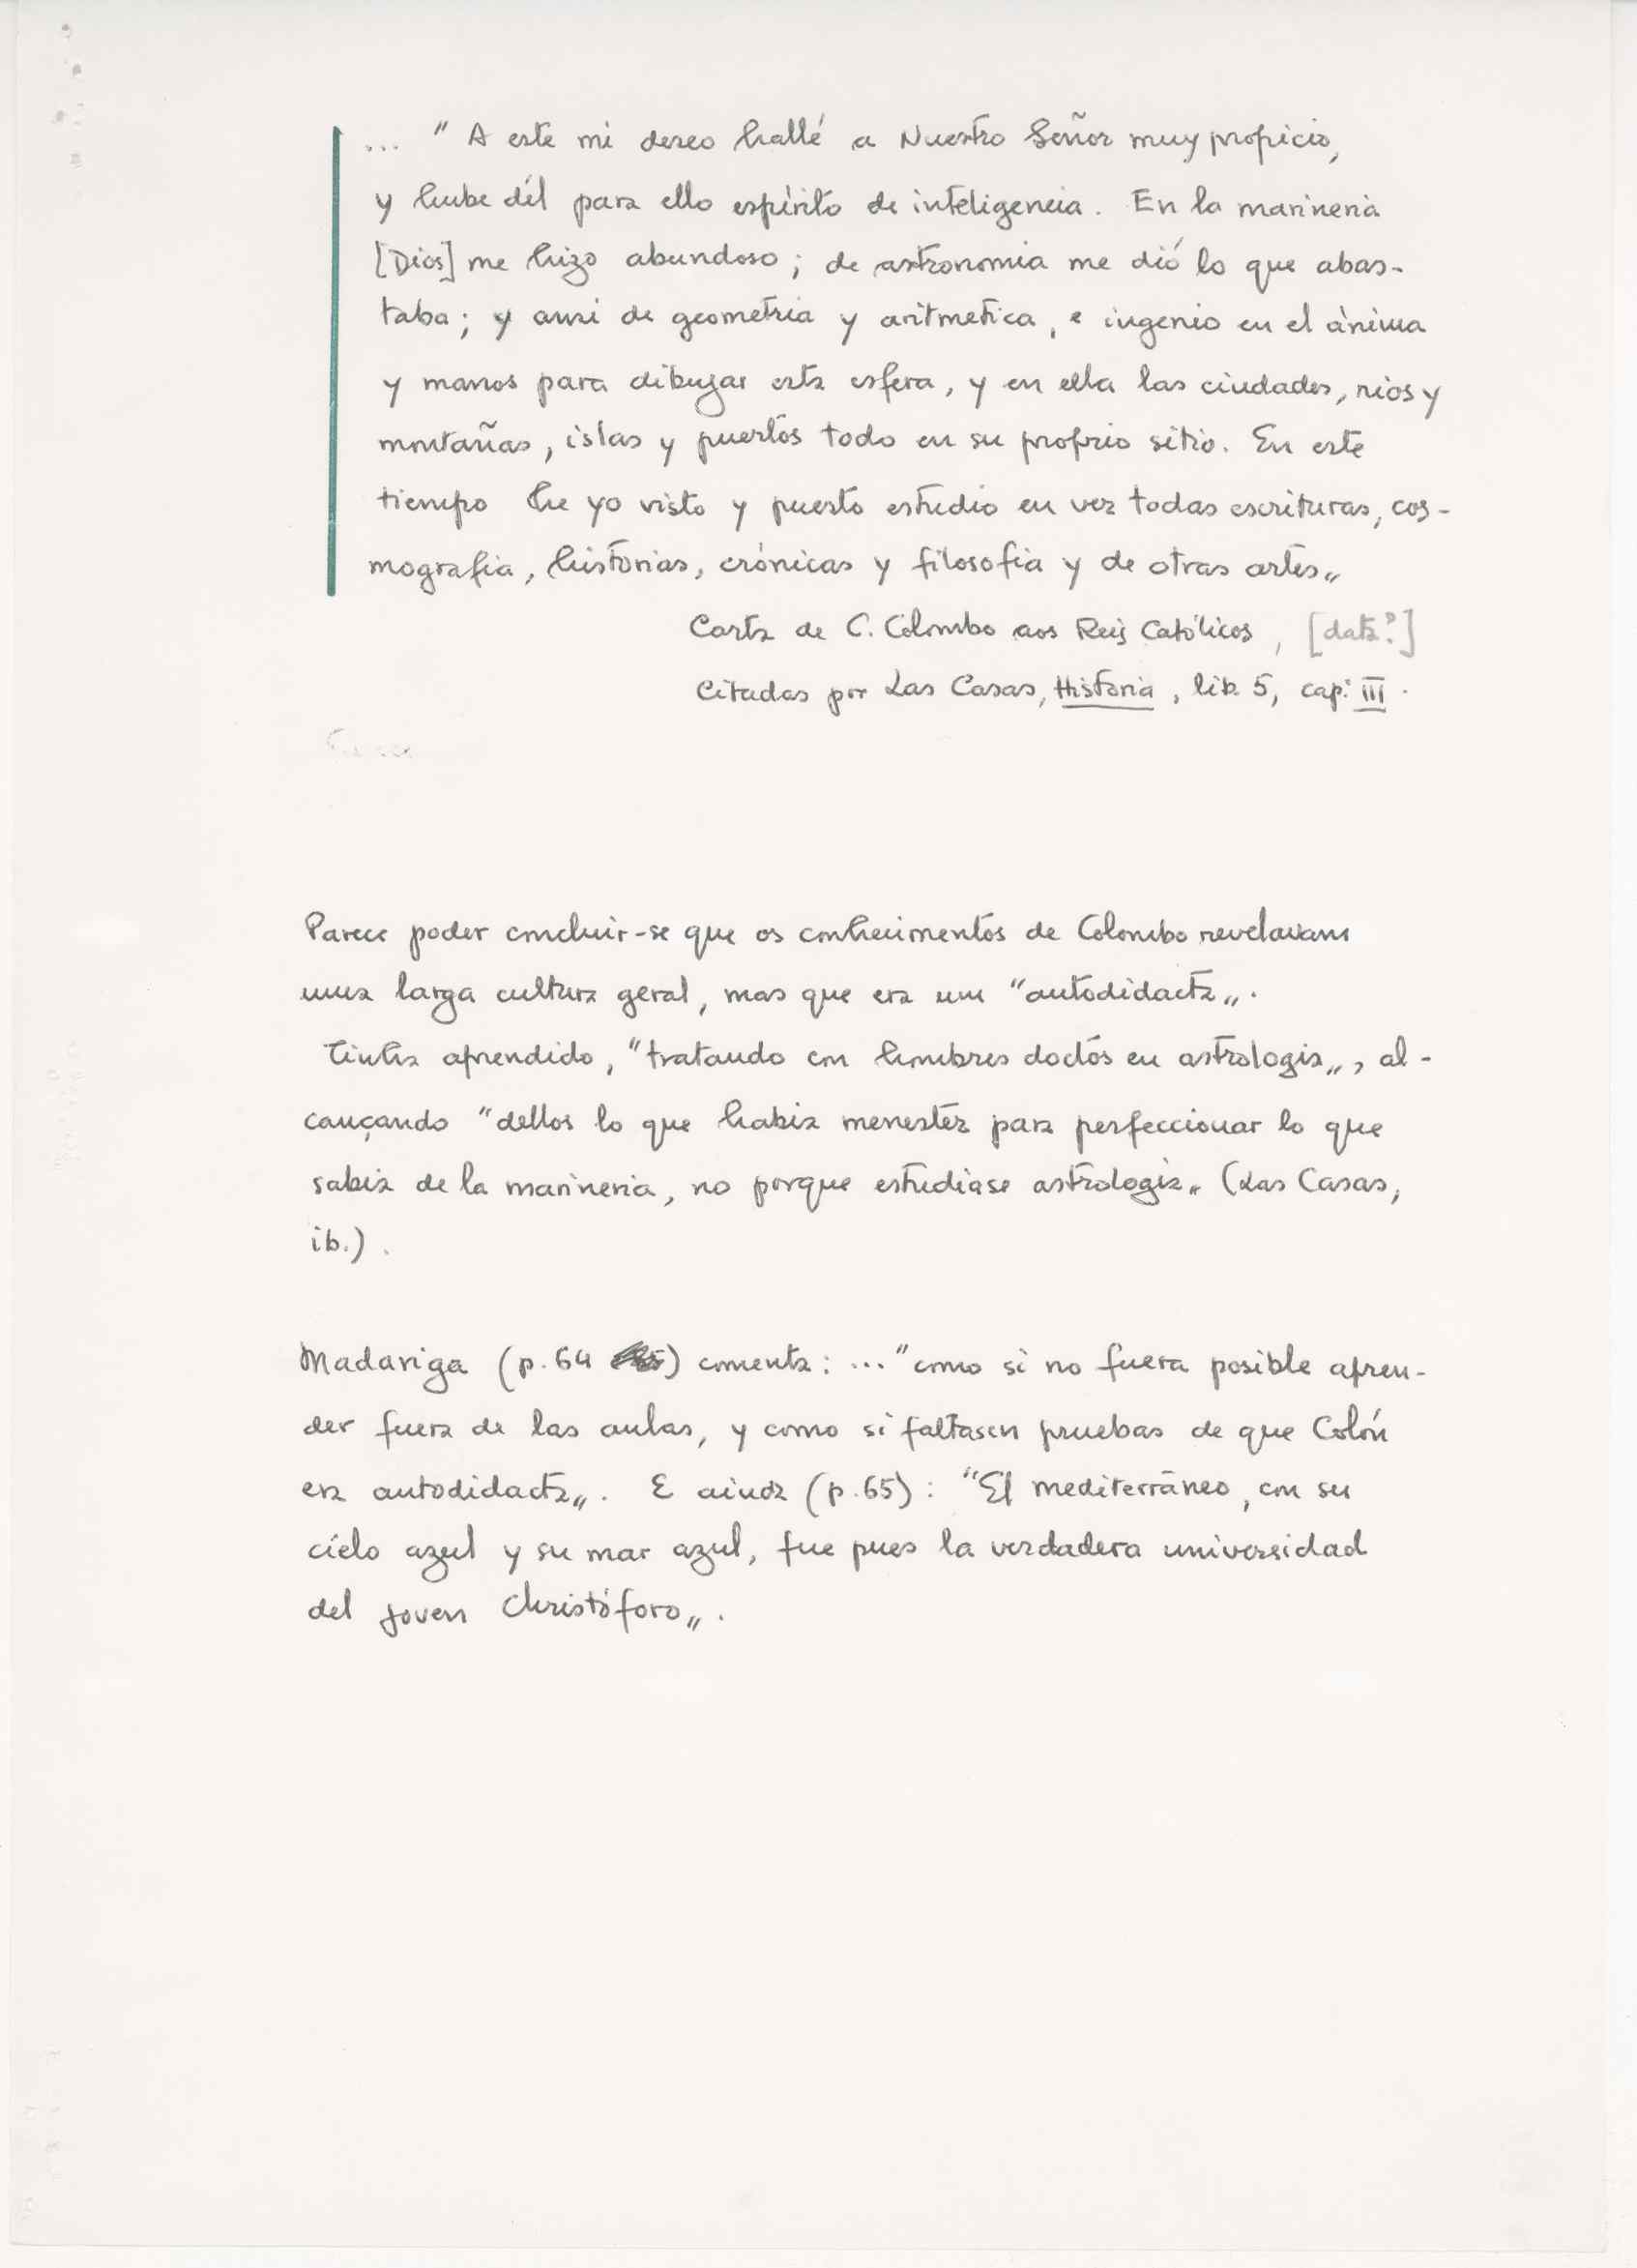 ... "A este mi deseo hallé a Nuestro Señor muy propicio,
y hube dél para ello espírito de inteligencia. En la marineria
[Dios] me hizo abundoso; de astronomia me dió lo que abas-
taba; y ansi de geometria y aritmetica, e ingenio en el ánima
y manos para dibujar esta esfera, y en ella las ciudades, rios y
montañas, islas y puertos todo en su proprio sitio. En este
tiempo he yo visto y puesto estudio en ver todas escrituras, cos-
mografia, historias, crónicas y filosofia y de otras artes„
Carta de C. Colombo aos Reis Católicos, [data?]
Citadas por Las Casas, Historia, lib. 5, cap: III.
Parece poder concluir-se que os conhecimentos de Colombo revelavam
uma larga cultura geral, mas que era um "autodidacta„.
Tinha aprendido, "tratando con hombres doctos en astrologia„, al-
cançando "dellos lo que habia menester para perfeccionar lo que
sabia de la marineria, no porque estudiase astrologia„ (Las Casas,
ib.).
Madariga (p. 64) comenta: ... "como si no fuera posible apren-
der fuera de las aulas, y como si faltasen pruebas de que Colón
era autodidacta„. E ainda (p. 65): "El mediterráneo, con su
cielo azul y su mar azul, fue pues la verdadera universidad
del joven Christóforo„.